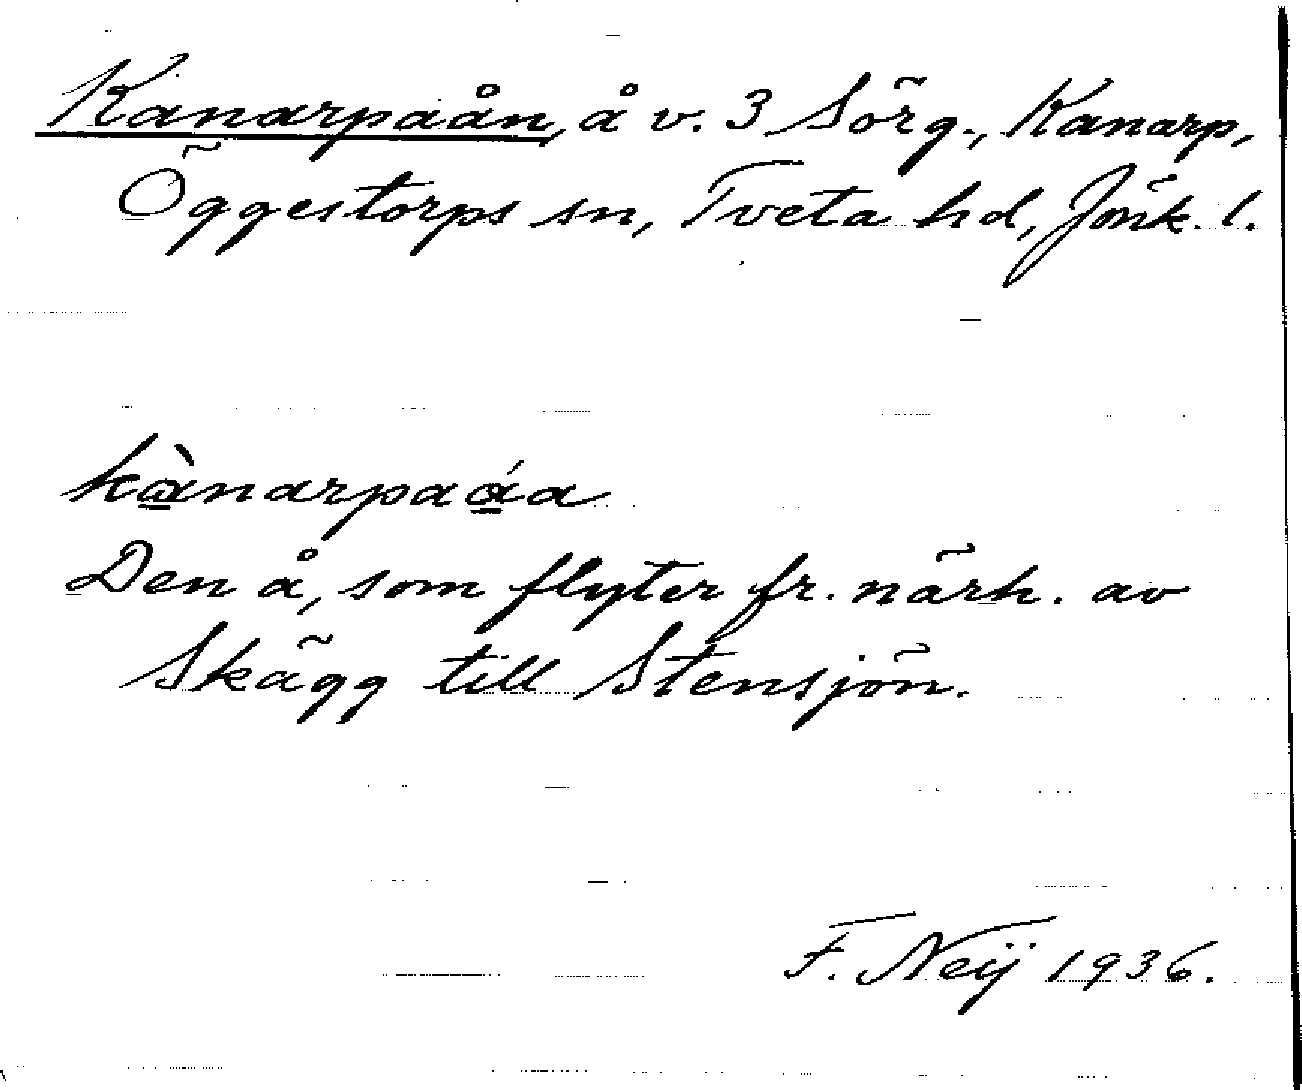 Kanarpaån, å v. 3 Sörg., Kanarp,
Öggestorps sn, Tveta hd, Jönk. l.
kànarpaáa
Den å, som flyter fr. närh. av
Skägg till Stensjön.
F. Neij 1936.